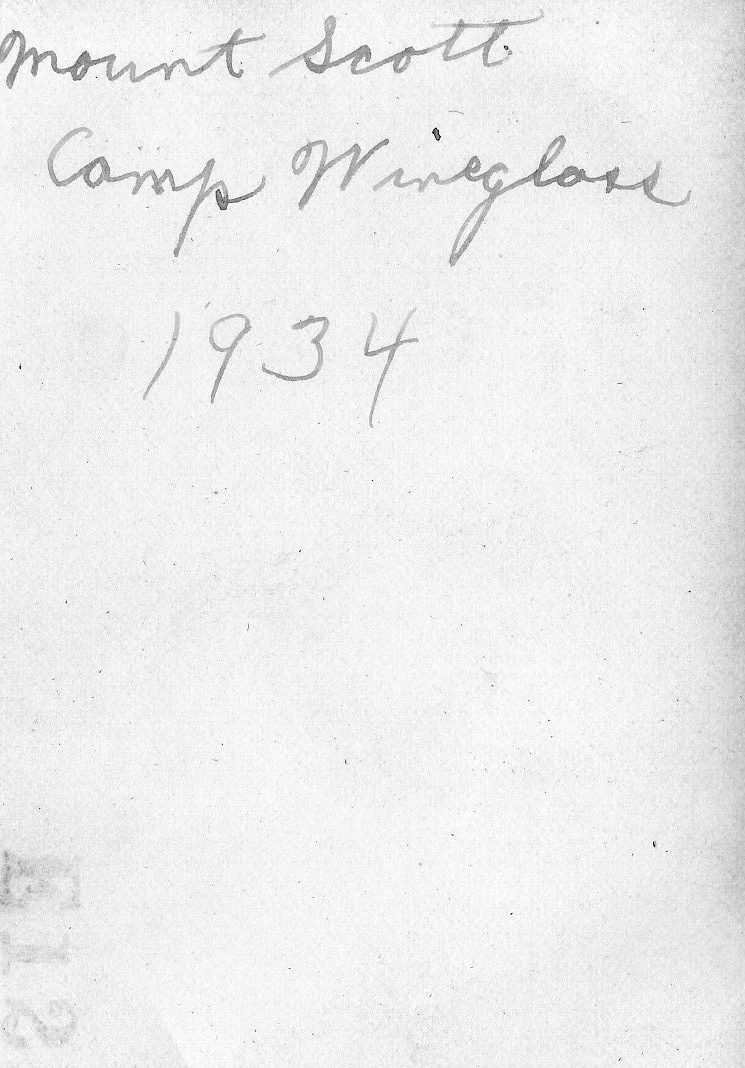 Mount Scott
Camp Wineglass
1934